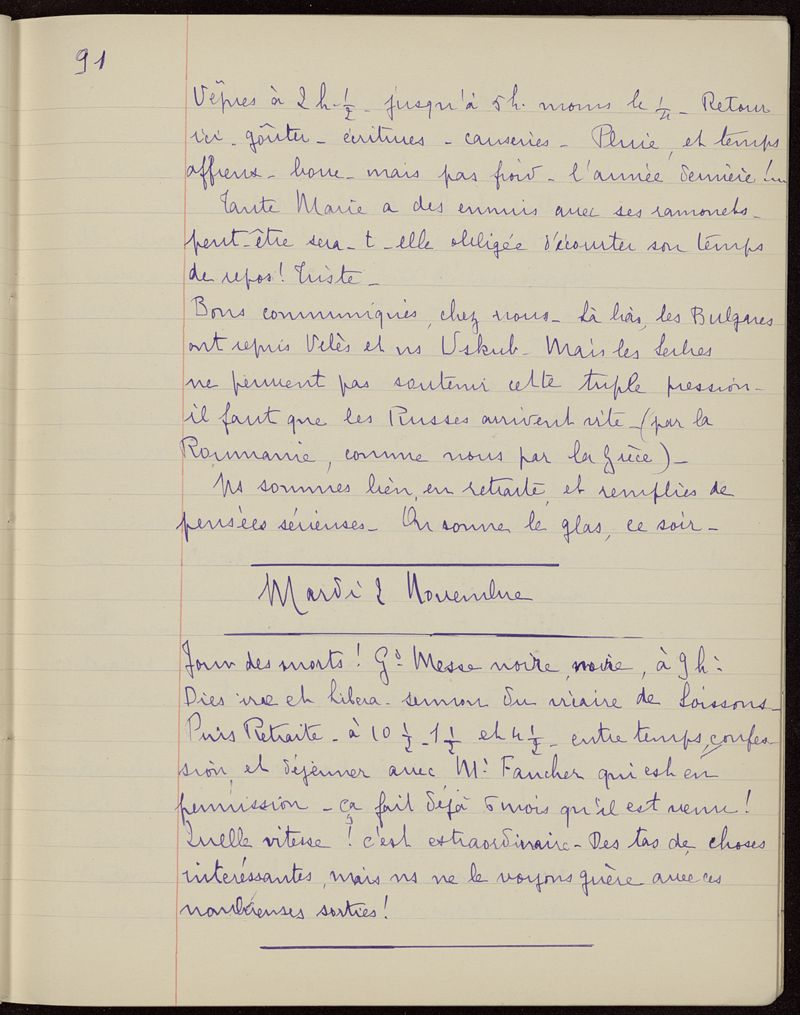 91
Vêpres à 2 h. 1/2 - jusqu'à 5 h. moins le 1/4 - Retour
ici - goûter - écritures - causeries - Pluie, et temps
affreux - boue - mais pas froid - l'année dernière !...
Tante Marie a des ennuis avec ses ramonets -
peut-être sera-t-elle obligée d'écourter son temps
de repos ! Triste -
Bons communiqués, chez nous - Là bas, les Bulgares
ont repris Velès et ns Uskub - Mais les Serbes
ne peuvent pas soutenir cette triple pression -
il faut que les Russes arrivent vite - (par la
Roumanie, comme nous par la Grèce) -
Ns sommes bien, en retraite, et remplies de
pensées sérieuses - On sonne le glas, ce soir -
Mardi 2 Novembre
Jour des morts ! Gd Messe noire, noire, à 9 h :
Dies irae et Libera - sermon du vicaire de Soissons -
Puis Retraite - à 10 1/2 - 1 1/2 et 4 1/2 - entre temps, confes-
sion, et déjeuner avec Mr Faucher qui est en
permission - ça fait déjà 6 mois qu'il est venu !
Quelle vitesse ! c'est extraordinaire - Des tas de choses
interéssantes, mais ns ne le voyons guère avec ces
nombreuses sorties !